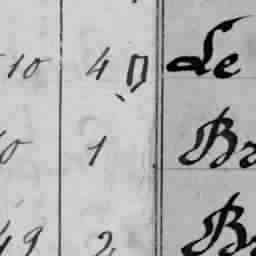 10 4 Le
0 1 Br
49 2 Br